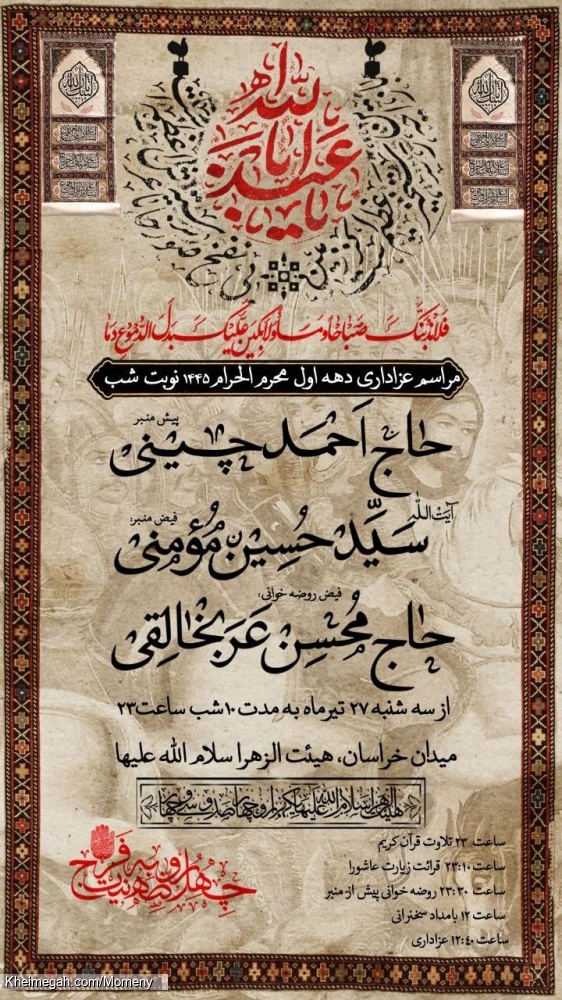 یا اباعبدالله
فلاندبنک صباحا و مساء و لابکین علیک بدل الدموع دما
مراسم عزاداری دهه اول محرم الحرام ۱۴۴۵ نوبت شب
پیش منبر
حاج اَحمد چینی
آیت الله
فیض منبر:
سیِّد حُسین مؤمنی
فیض روضه خوانی:
حاج مُحسِن عَرَبخالِقی
از سه شنبه ۲۷ تیرماه به مدت ۱۰ شب ساعت ۲۳
میدان خراسان، هیئت الزهرا سلام الله علیها
ساعت ۲۳ تلاوت قرآن کریم
ساعت ۲۳:۱۰ قرائت زیارت عاشورا
ساعت ۲۳:۳۰ روضه خوانی پیش از منبر
ساعت ۱۲ بامداد سخنرانی
ساعت ۱۲:۴۰ عزاداری
Kheimegah.com/Momeny